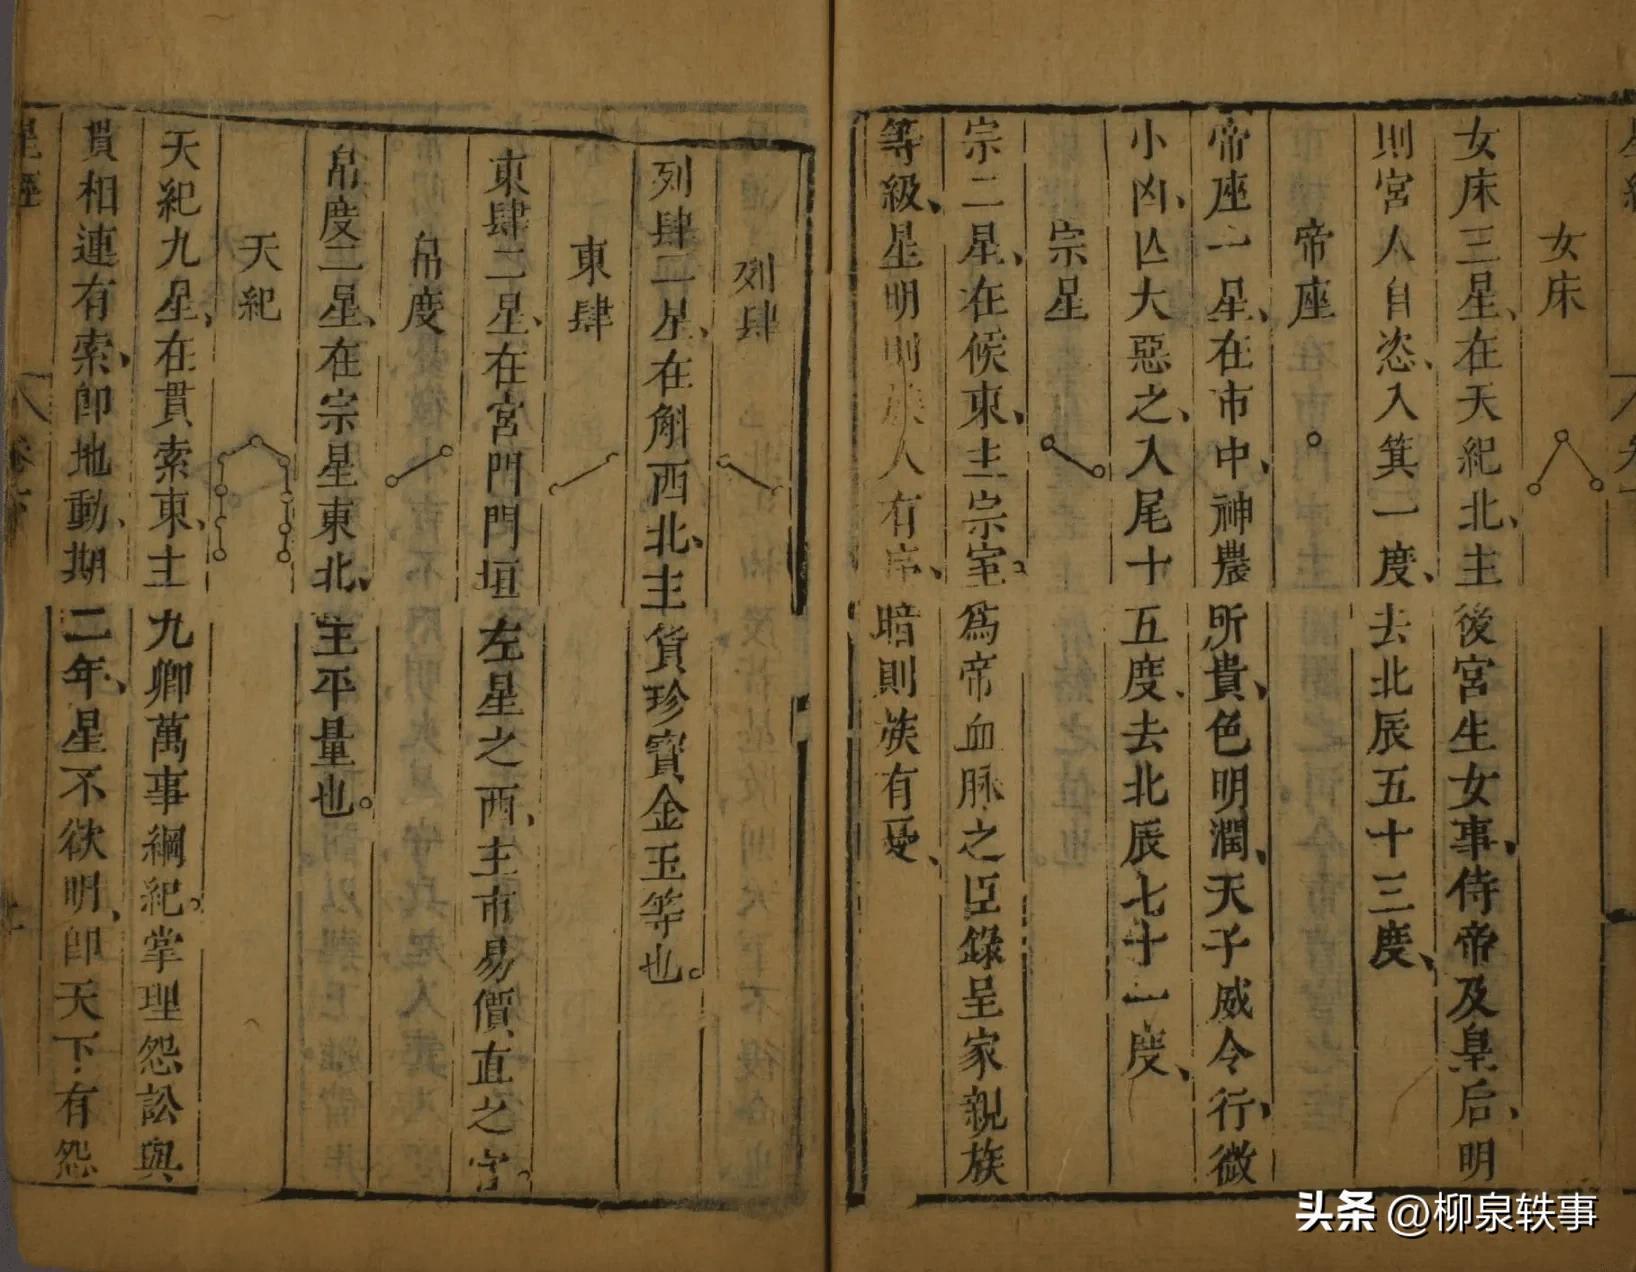 星經
女床
女床三星、在天紀北、主後宮生女事、侍帝及皇后、明
則宮人自恣、入箕一度、去北辰五十三度、
帝座
帝座一星、在市中、神農所貴、色明潤、天子威令行、微
小凶、亾大惡之、入尾十五度、去北辰七十一度、
宗星
宗二星、在候東、主宗室。為帝血脉之臣錄呈家親族
等級、星明則族人有序、暗則族有憂、
列肆
列肆二星、在斛西北、主貨珍寶金玉等也。
東肆
東肆二星、在宮門門垣左星之西、主市易價、直之官。
帛度
帛度二星、在宗星東北、主平量也。
天紀
天紀九星、在貫索東、主九卿萬事綱紀。掌理怨訟與
貫相連有索、即地動、期二年、星不欲明、即天下有怨
星經
卷下
头条 @柳泉轶事